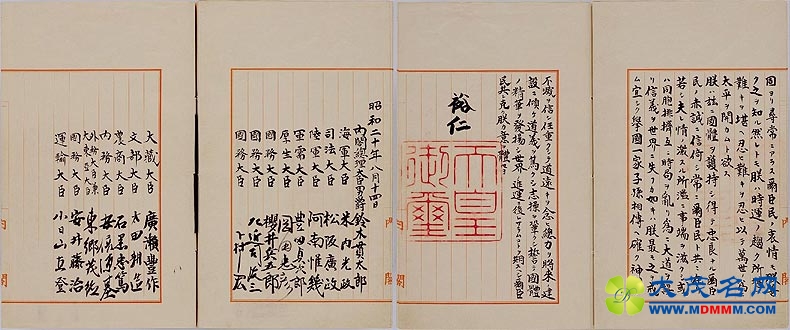 固ヨリ尋常ニアラス爾臣民ノ衷情モ
ク之ヲ知ル然レトモ朕ハ時運ノ趨ク所堪
難キヲ堪ヘ忍ヒ難キヲ忍ヒ以テ萬世ノ爲
太平ヲ開カムト欲ス
朕ハ茲ニ國體ヲ護持シ得テ忠良ナル爾臣
民ノ赤誠ニ信倚シ常ニ爾臣民ト共ニ
若シ夫レ情ノ激スル所濫ニ事端ヲ滋クシ或
ハ同胞排擠互ニ時局ヲ亂リ爲ニ大道ヲ
リ信義ヲ世界ニ失フカ如キハ朕最モ之ヲ戒
ム宜シク擧國一家子孫相傳ヘ確ク神
不滅ヲ信シ任重クシテ道遠キヲ念ヒ總力ヲ將來ノ建
設ニ傾ケ道義ヲ篤クシ志操ヲ鞏クシ誓テ國體
ノ精華ヲ發揚シ世界ノ進運ニ後レサラムコトヲ期スヘシ爾臣
民其レ克ク朕カ意ヲ體セヨ
裕仁
天皇
御璽
昭和二十年八月十四日
内閣總理大臣男爵 鈴木貫太郎
海軍大臣 米内光政
司法大臣 松阪廣政
陸軍大臣 阿南惟幾
軍需大臣 豊田貞次郎
厚生大臣 岡田忠彦
國務大臣 櫻井兵五郎
國務大臣 左近司政三
國務大臣 下村宏
大藏大臣 廣瀬豊作
文部大臣 太田耕造
農商大臣 石黒忠篤
内務大臣 安倍源基
外務大臣兼大東亞大臣 東郷茂徳
國務大臣 安井藤治
運輸大臣 小日山直登
内閣
大茂名网
WWW.MDMMM.COM